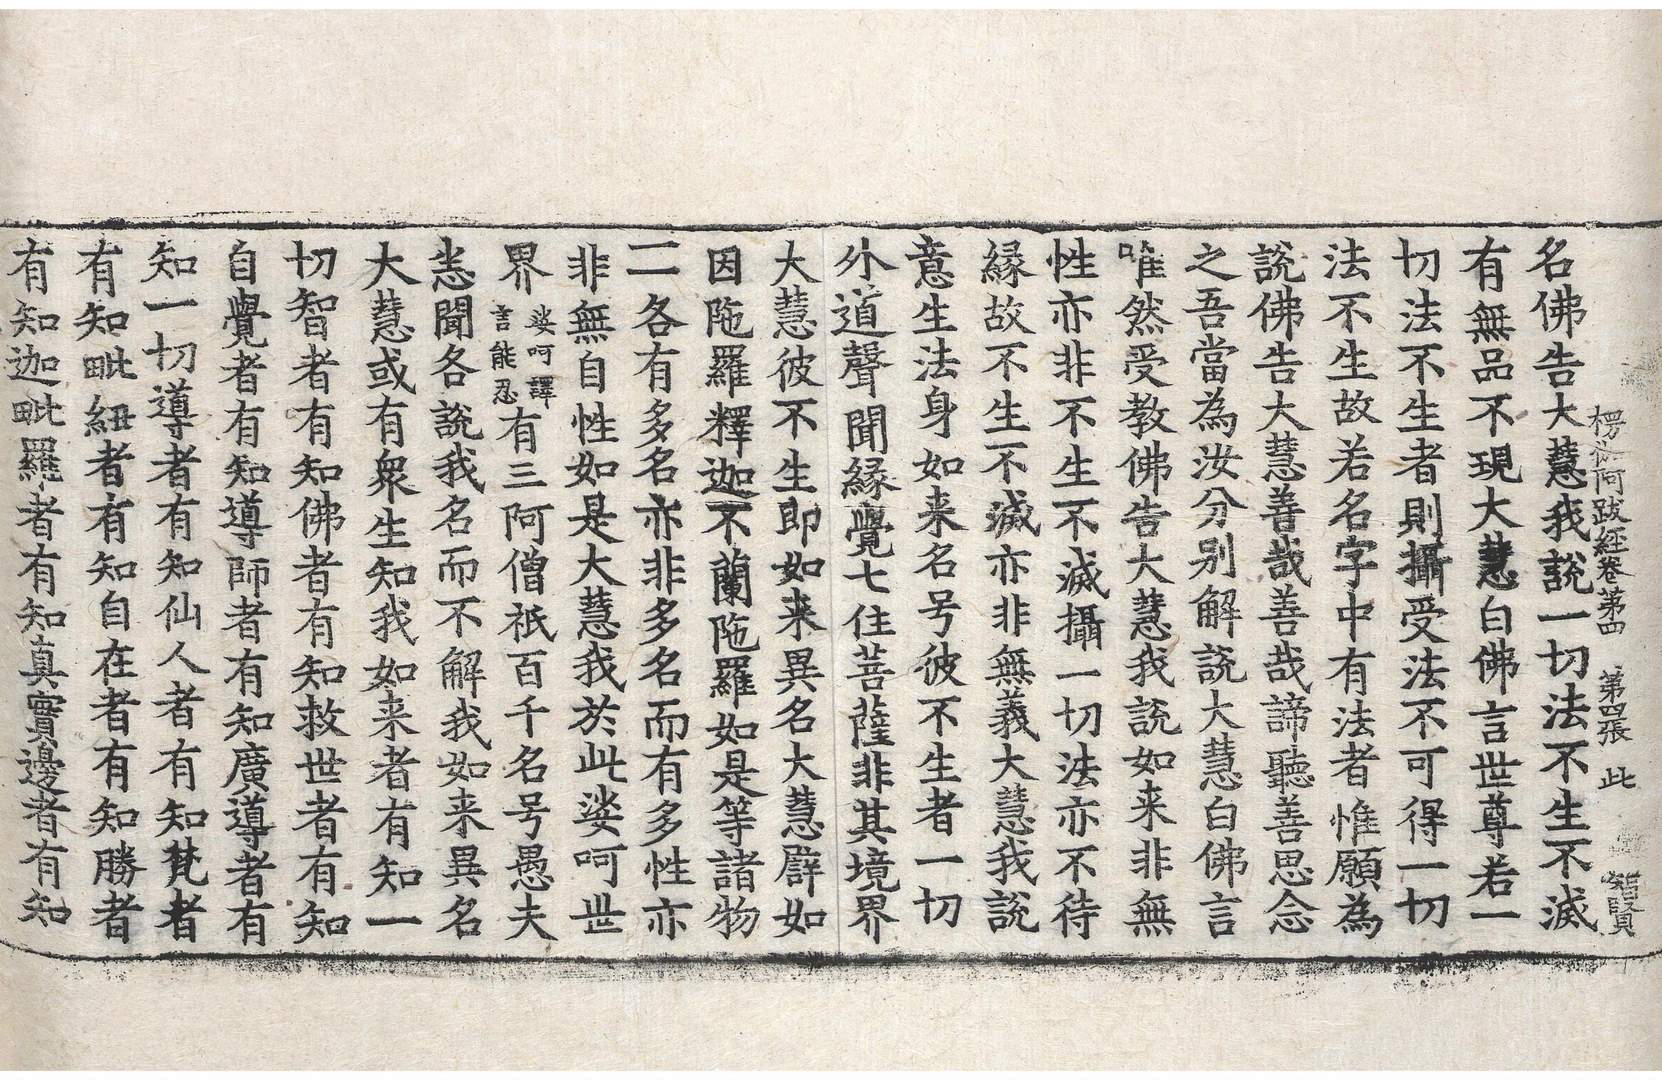 楞伽阿跋經卷第四　第四張　此　智賢
名佛告大慧我説一切法不生不滅
有無品不現大慧白佛言世尊若一
切法不生者則攝受法不可得一切
法不生故若名字中有法者惟願為
説佛告大慧善哉善哉諦聽善思念
之吾當為汝分別解説大慧白佛言
唯然受教佛告大慧我説如来非無
性亦非不生不滅攝一切法亦不待
縁故不生不滅亦非無義大慧我説
意生法身如来名号彼不生者一切
外道聲聞縁覺七住菩薩非其境界
大慧彼不生即如来異名大慧譬如
因陁羅釋迦不蘭陁羅如是等諸物
一一各有多名亦非多名而有多性亦
非無自性如是大慧我於此娑呵世
界娑呵譯言能忍有三阿僧祇百千名号愚夫
悉聞各説我名而不解我如来異名
大慧或有衆生知我如来者有知一
切智者有知佛者有知救世者有知
自覺者有知導師者有知廣導者有
知一切導者有知仙人者有知梵者
有知毗紐者有知自在者有知勝者
有知迦毗羅者有知真實邊者有知